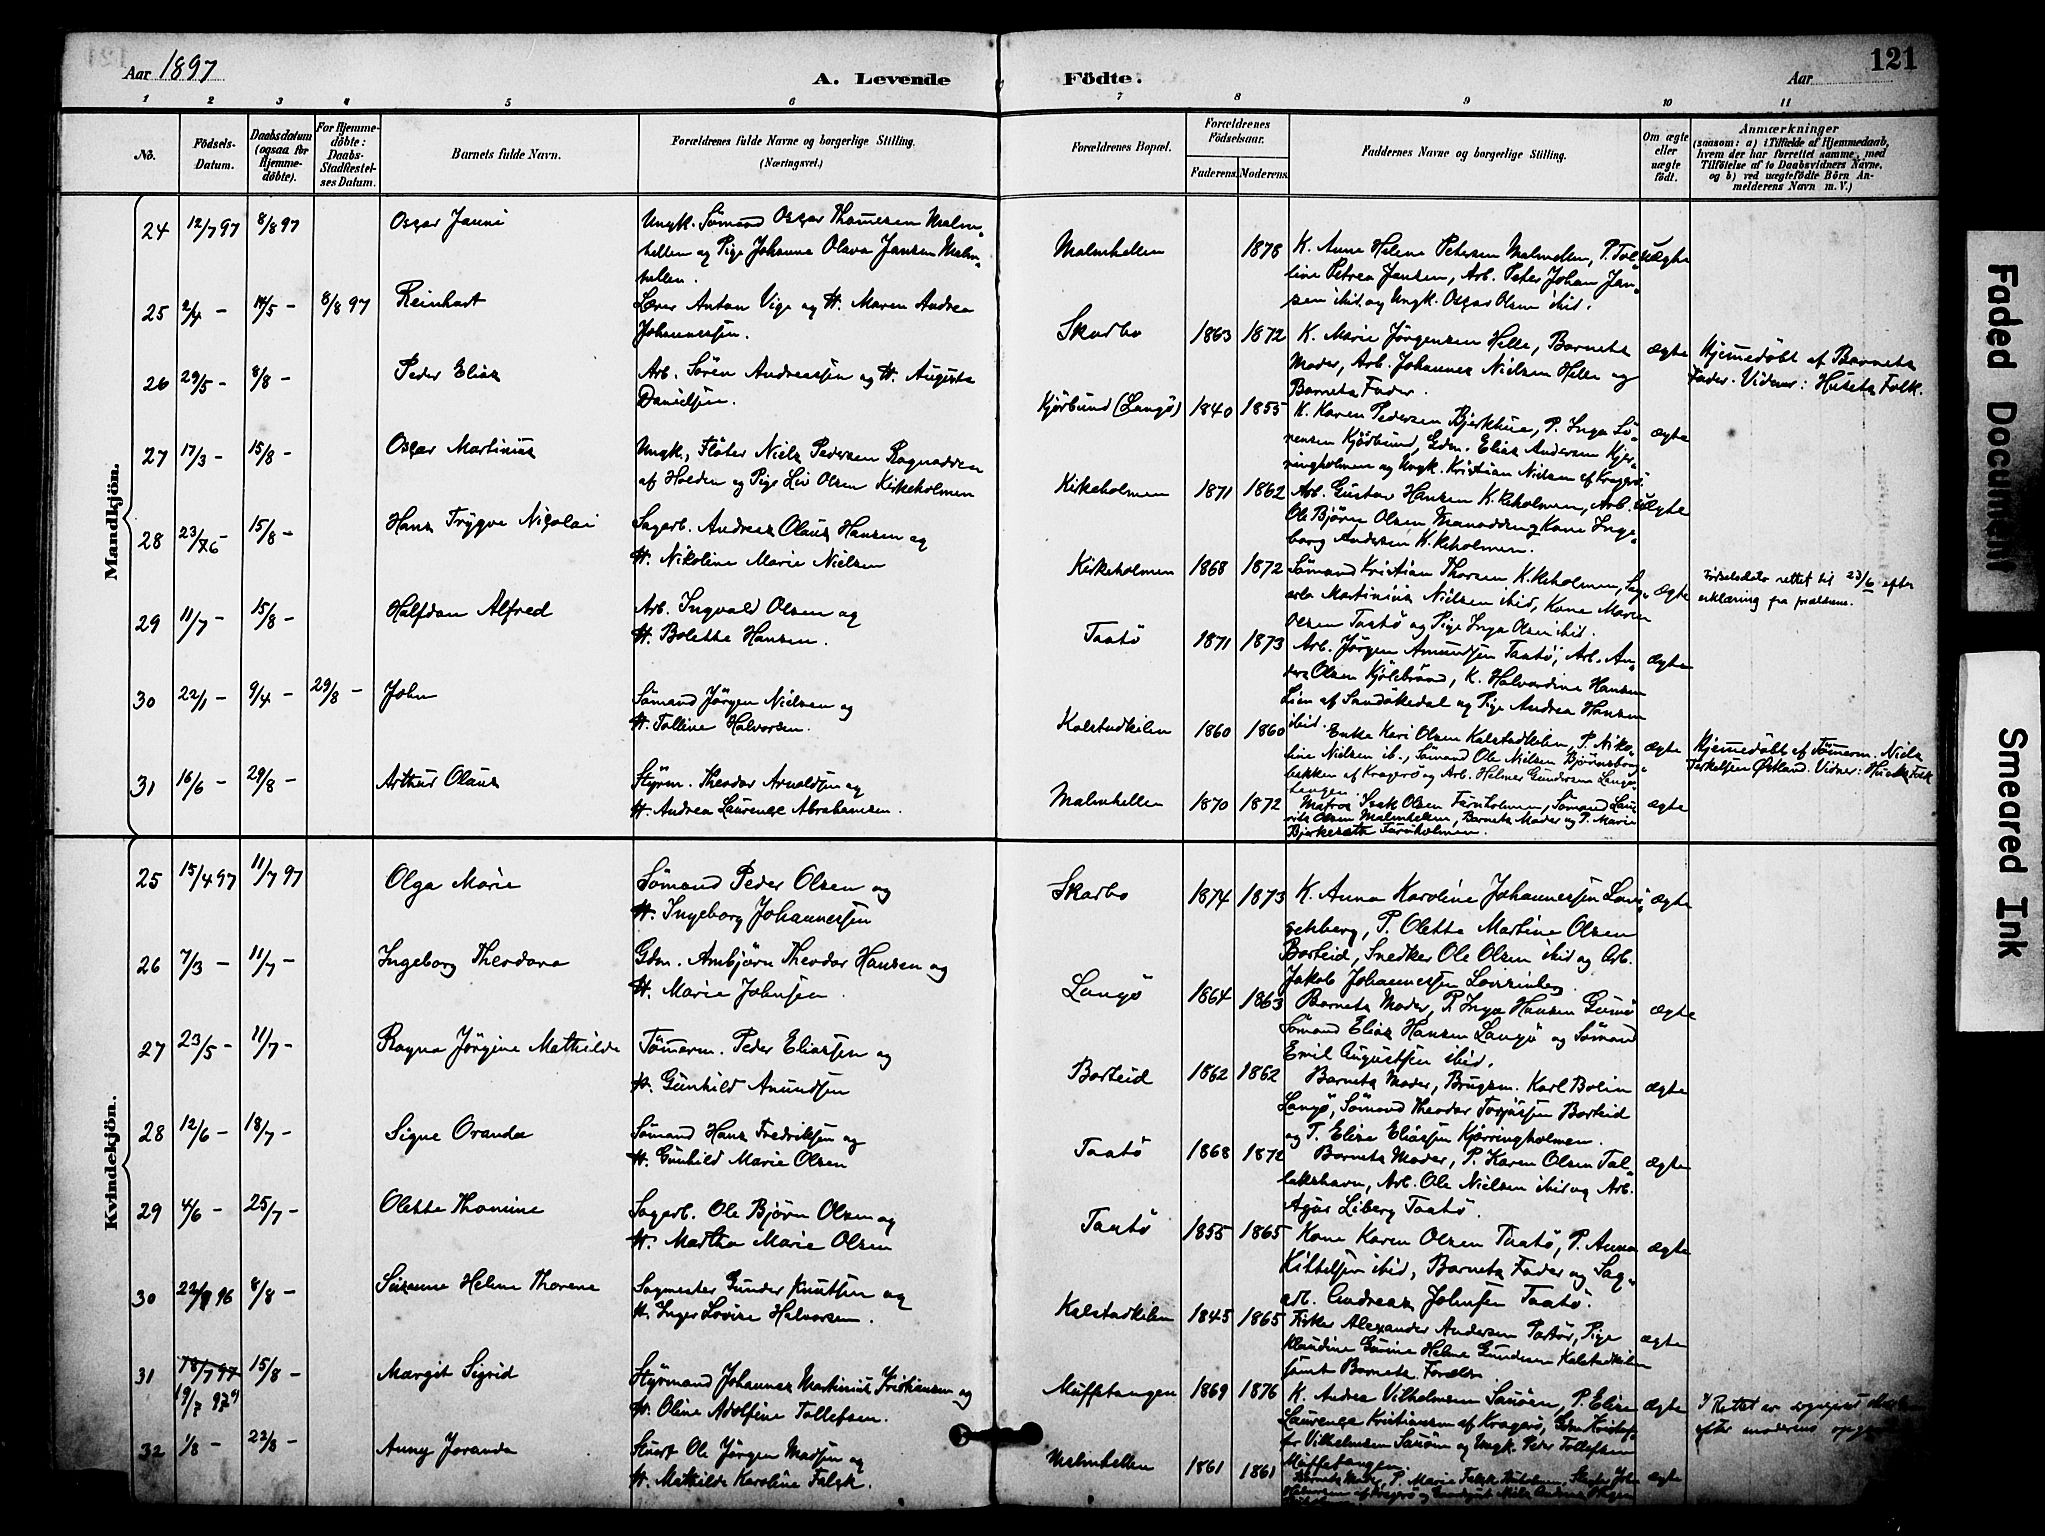 Aar 1897
A. Levende Födte.
Aar
121
1 2 3 4 5 6 7 8 9 10 11
No.
Födsels-Datum.
Daabsdatum (ogsaa for Hjemme-döbte).
For Hjemme-döbte: Daabs-Stadfæstel-ses Datum.
Barnets fulde Navn.
Forældrenes fulde Navne og borgerlige Stilling. (Næringsvei.)
Forældrenes Bopæl.
Forældrenes Födselsaar.
Faderens. Moderens.
Faddernes Navne og borgerlige Stilling.
Om ægte eller uægte födt.
Anmærkninger (saasom: a) i Tilfælde af Hjemmedaab, hvem der har forrettet samme, med Tilföielse af to Daabsvidners Navne, og b) ved uægtefödte Börn An-melderens Navn m. V.)
Mandkjön.
24 12/7 97 8/8 97 Oscar Janni
Ungk. Sömand Oscar Thomesen Malm-
hellen og Pige Johanna Olava Jansen Malm-
hellen.
Malmhellen 1878
K. Anne Helene Petersen Malmhellen, P. Tol-
line Petrea Jansen, Arb. Peter Johan Jan-
sen ibid. og Ungk. Oscar Olsen ibid.
uægte
25 2/4 - 14/5 - 8/8 97 Reinhart
Lærer Anton Vige og H. Maren Andrea
Johannessen.
Skarbo 1863 1872
K. Marie Jörgensen Helle, Barnets
Moder, Arb. Johannes Nielsen Helle og
Barnets Fader.
ægte
Hjemmedöbt af Barnets
Fader. Vidner: Husets Folk.
26 29/5 - 8/8 - Peder Elias
Arb. Sören Andreassen og H. Augusta
Danielsen.
Kjörbund (Langö) 1840 1855
K. Karen Pedersen Bjerkhue, P. Inga Sö-
rensen Kjörbund, Gdm. Elias Andersen Kjær-
ringholmen og Ungk. Kristian Nielsen af Kragerö.
ægte
27 17/3 - 15/8 - Oscar Martinius
Ungk. Fløter Niels Pedersen Rognodden
af Holden og Pige Liv Olsen Kirkeholmen
Kirkeholmen 1871 1862
Arb. Gustav Hansen Kirkeholmen, Arb.
Ole Björn Olsen og Kone Inge-
borg Andersen Kirkeholmen.
uægte
28 23/6 - 15/8 - Hans Trygve Nicolai
Sagarb. Andreas Olaus Hansen og
H. Nikoline Marie Nielsen
Kirkeholmen 1868 1872
Sömand Kristian Thorsen Kirkeholmen, Sag-
arb. Martinius Nielsen ibid, Kone Maren
Olsen Taatö og Pige Inga Olsen ibid.
ægte
Fødselsdato rettet til 23/6 efter
erklæring fra forældrene.
29 11/7 - 15/8 - Halfdan Alfred
Arb. Ingvald Olsen og
H. Bolette Hansen.
Taatö 1871 1873
Arb. Jörgen Amundsen Taatö, Arb. An-
ders Olsen Kjölebrönd, K. Halvardine Hansen
Lien af Sandökedal og Pige Andrea Hansen
ibid.
ægte
30 22/1 - 9/4 - 29/8 - John
Sömand Jörgen Nielsen og
H. Talline Halvorsen.
Kalstadkilen 1860 1860
Enke Kari Olsen Kalstadkilen, P. Niko-
line Nielsen ib., Sömand Ole Nielsen Björnsborg-
bakken af Kragerö og Arb. Helmer Gundersen Lang-
tangen.
ægte
Hjemmedöbt af Tömerm. Niels
Terkelsen Östland. Vidner: Husets Folk
31 16/6 - 29/8 - Arthur Olaus
Styrm. Theodor Arnoldsen og
H. Andrea Laurense Abrahamsen.
Malmhellen 1870 1872
Matros Isak Olsen Furuholmen, Sömand Lau-
rits Olsen Malmhellen, Barnets Moder og P. Marie
Bjerkesæth Furuholmen.
ægte
Kvindekjön.
25 15/4 97 11/7 97 Olga Marie
Sömand Peder Olsen og
H. Ingeborg Johannessen
Skarbo 1874 1873
K. Anna Karoline Johannessen
P. Olette Martine Olsen
Barteid, Snedker Ole Olsen ibid og Arb.
Jakob Johannessen
ægte
26 7/3 - 11/7 - Ingeborg Theodora
Gdm. Arnbjörn Theodor Hansen og
H. Marie Johnsen.
Langö 1864 1863
Barnets Moder, P. Inga Hansen Gumö
Sömand Elias Hansen Langö og Sömand
Emil Augustsen ibid.
ægte
27 23/5 - 11/7 - Ragna Jörgine Mathilde
Tömerm. Peder Eliassen og
H. Gunhild Amundsen
Barteid 1862 1862
Barnets Moder, Brugsm. Karl Bolin
Langö, Sömand Theodor Torjussen Barteid
og P. Elise Eliassen Kjærringholmen.
ægte
28 12/6 - 18/7 - Signe Oranda
Sömand Hans Fredriksen og
H. Gunhild Marie Olsen
Taatö 1868 1872
Barnets Moder, P. Karen Olsen Tal-
lakshavn, Arb. Ole Nielsen ibid og Arb.
Liberg Taatö.
ægte
29 4/6 - 25/7 - Olette Thomine
Sagarb. Ole Björn Olsen og
H. Martha Marie Olsen
Taatö 1855 1865
Kone Karen Olsen Taatö, P. Anna
Kittelsen ibid, Barnets Fader og Sag-
arb. Andreas Johnsen Taatö.
ægte
30 96 8/8 - Susanne Helene Thorene
Sagmester Gunder Knutsen og
H. Inger Lovise Halvorsen.
Kalstadkilen 1845 1865
Fisker Alexander Andersen Portör, Pige
Klaudine Gurine Helene Gundersen Kalstadkilen
samt Barnets Forældre
ægte
31 18/7 97 19/7 97 15/8 - Margit Sigrid
Styrmand Johannes Martinius Kristiansen og
H. Oline Adolfine Tollefsen.
Muffetangen 1869 1876
K. Andrea Vilhelmsen Sauöen, P. Elise
Laurense Kristiansen af Kragerö, Gdm. Kristof-
fer Vilhelmsen Sauöen og Ungk. Peder Tollefsen
Muffetangen.
ægte
Rettet
efter moderens
32 1/8 - 22/8 - Anny Joranda
Stuert Ole Jörgen Madsen og
H. Mathilde Karoline Falck.
Malmhellen 1861 1861
Barnets Moder, P. Marie Falck
af Kragerö og
ægte
Faded Document
Smeared Ink